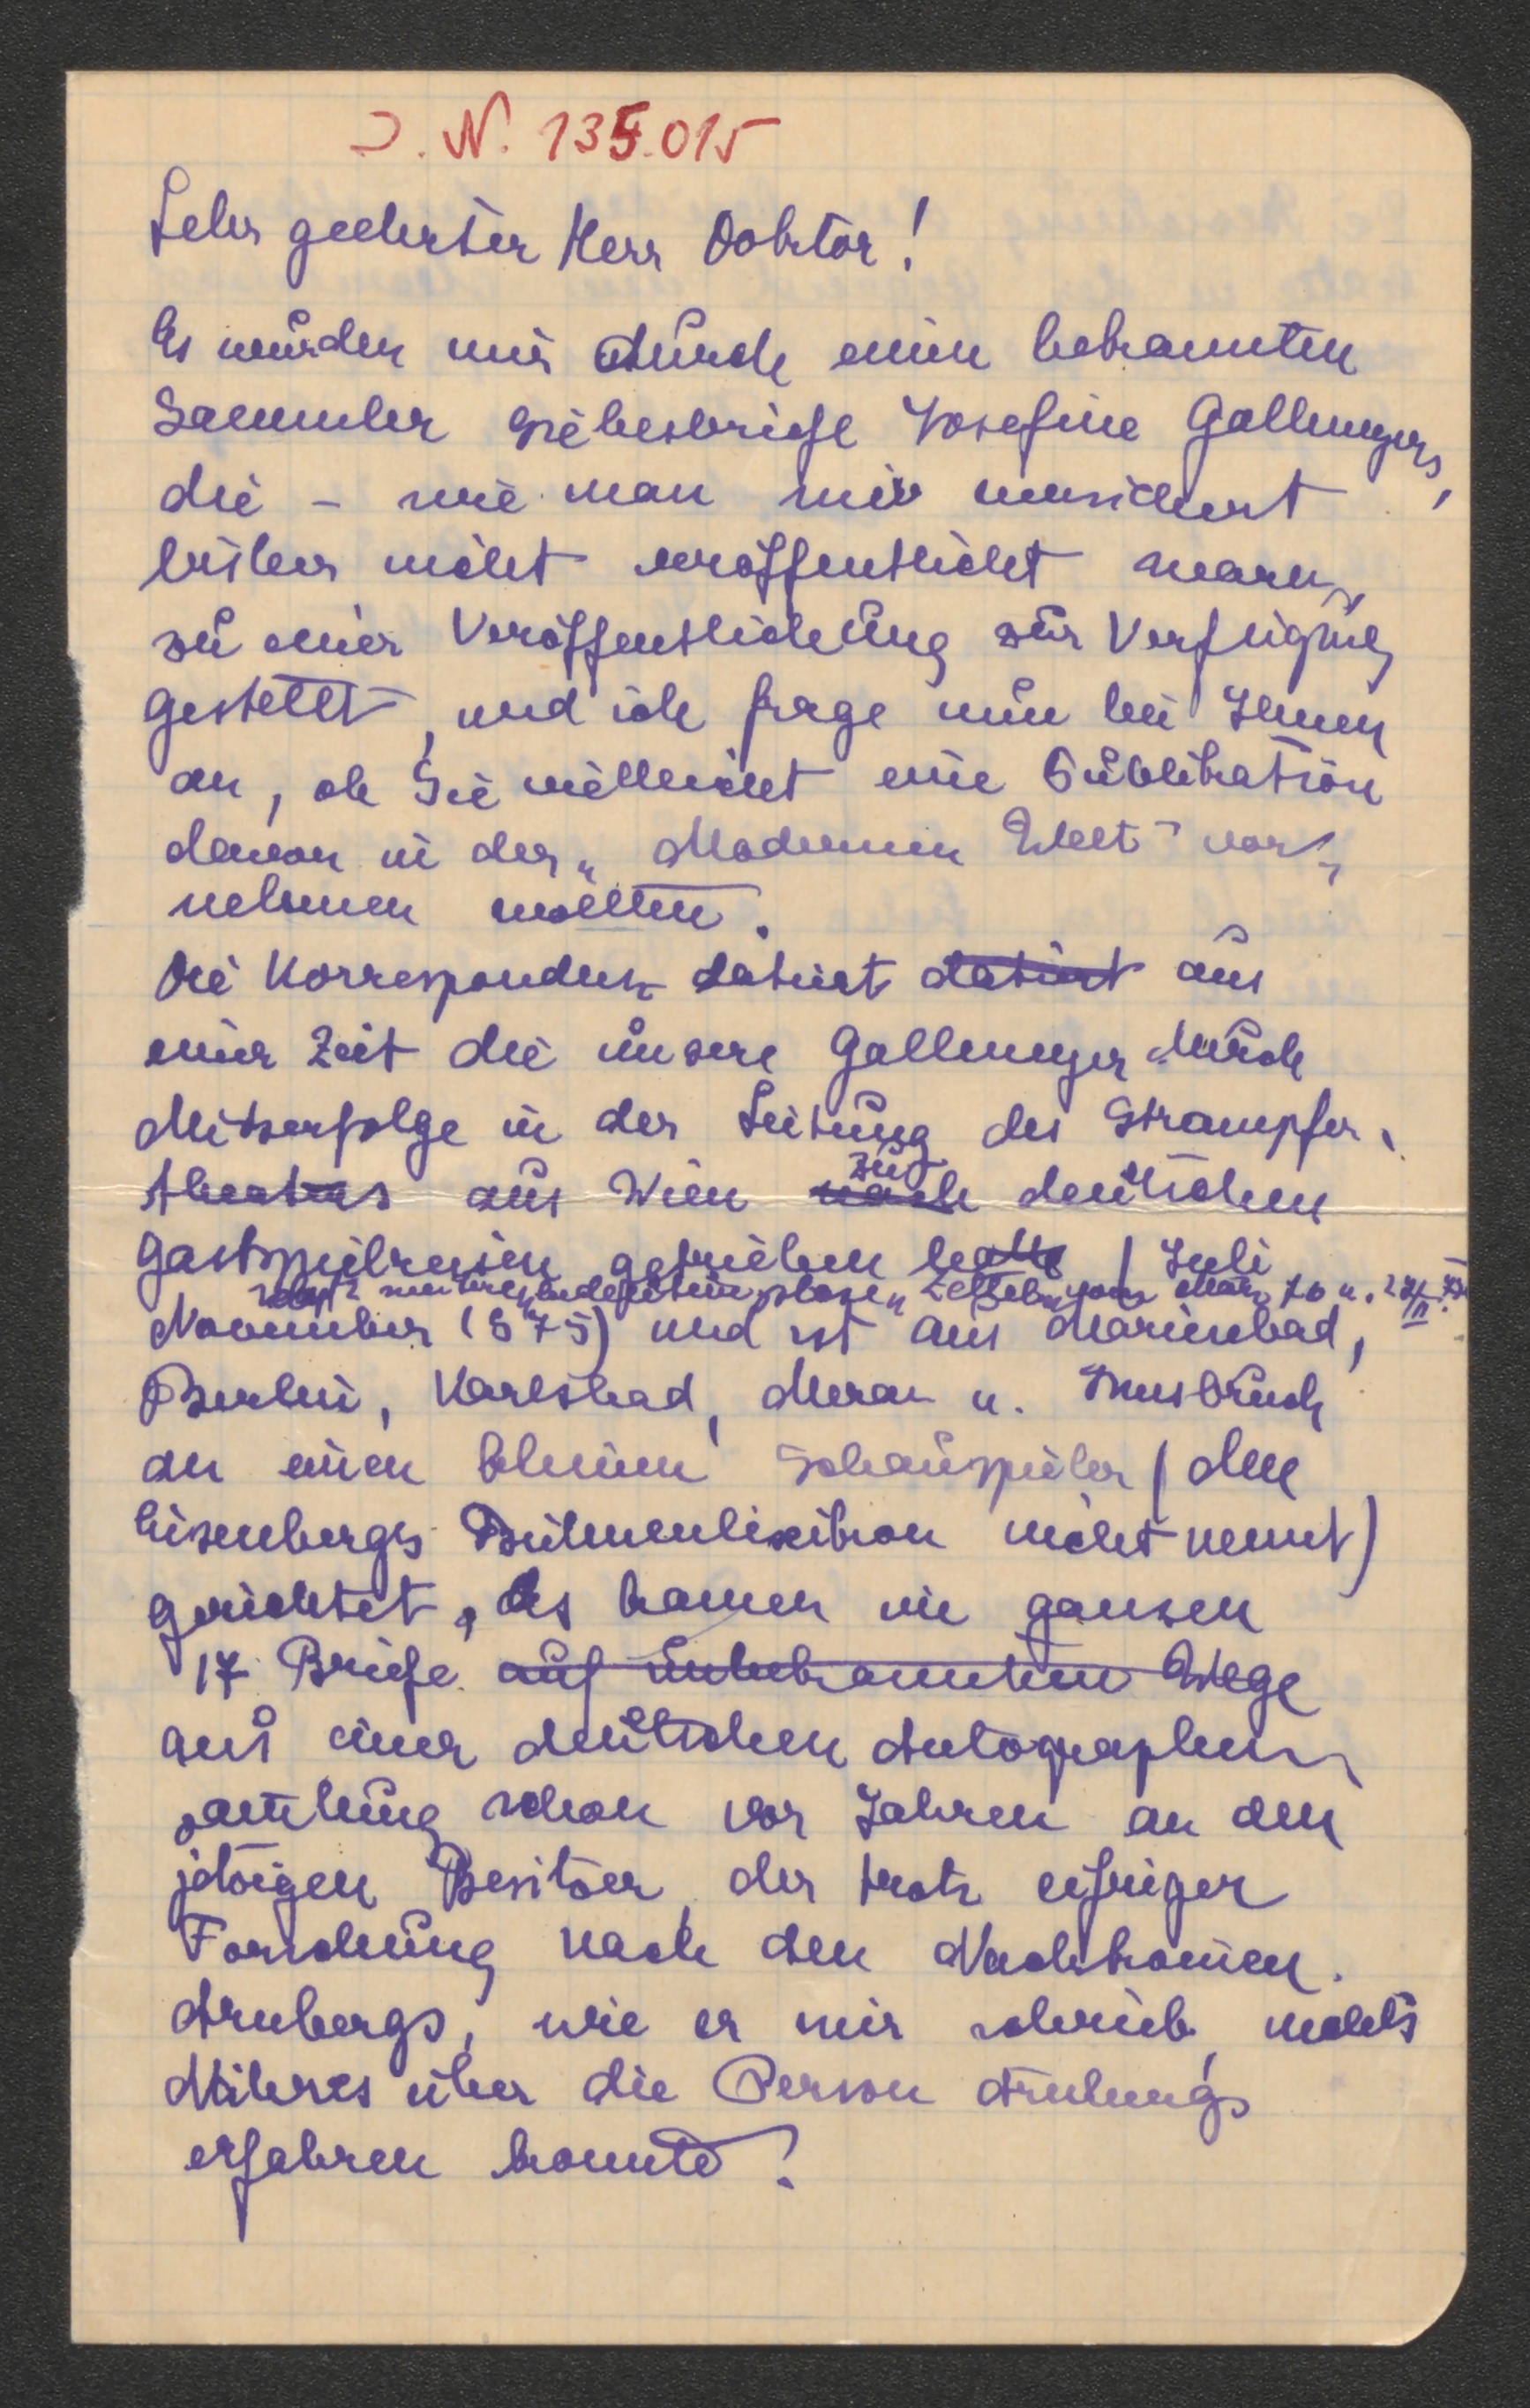 J. N. 135.015
Sehr geehrter Herr Doktor!
Es wurden mir durch einen bekannten
Sammler Liebesbriefe Josefine Gallmeyers,
die – wie man mir versichert
bisher nicht veröffentlicht waren,
zu einer Veröffentlichung zur Verfügung
gestellt, und ich frage nun bei Ihnen
an, ob Sie vielleicht eine Publikation
davon in der „Modernen Welt" vor-
nehmen wollten.
Die Korrespondenz datiert datiert aus
einer Zeit die unsere Gallmeyer durch
Misserfolge in der Leitung des Strampfer-
theaters aus Wien nach zu deutschen
Gastspielreisen getrieben hatte (Juli
mehrere undefinierbare „Zetteln" vom März 76 u.
November 1875) und ist aus Marienbad,
Berlin, Karlsbad, Meran u. Innsbruck
an einen kleinen Schauspieler (den
Eisenbergs Bühnenlexikon nicht nennt)
gerichtet, es kamen die ganzen
17 Briefe auf unbekanntem Wege
aus einer deutschen Autographen-
samlung schon vor Jahren an den
jetzigen Besitzer, der trotz eifriger
Forschung nach den Nachkomen
Arnbergs, wie er mir schrieb, nichts
Näheres über die Person Arnbergs
erfahren konnte!